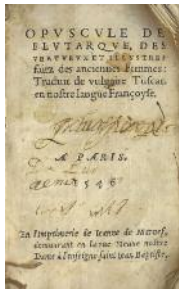 OPVSCVLE DE
PLVTARQVE, DES
VERTVEVX ET ILLVSTRES
faictz des anciennes Femmes:
Traduit de vulgaire Tuscan
en nostre langue Françoyse.
A PARIS.
En l'Imprimerie de Ieanne de Marnef,
demourant en la rue Neuue nostre
Dame à l'enseigne saint Iean Baptiste.